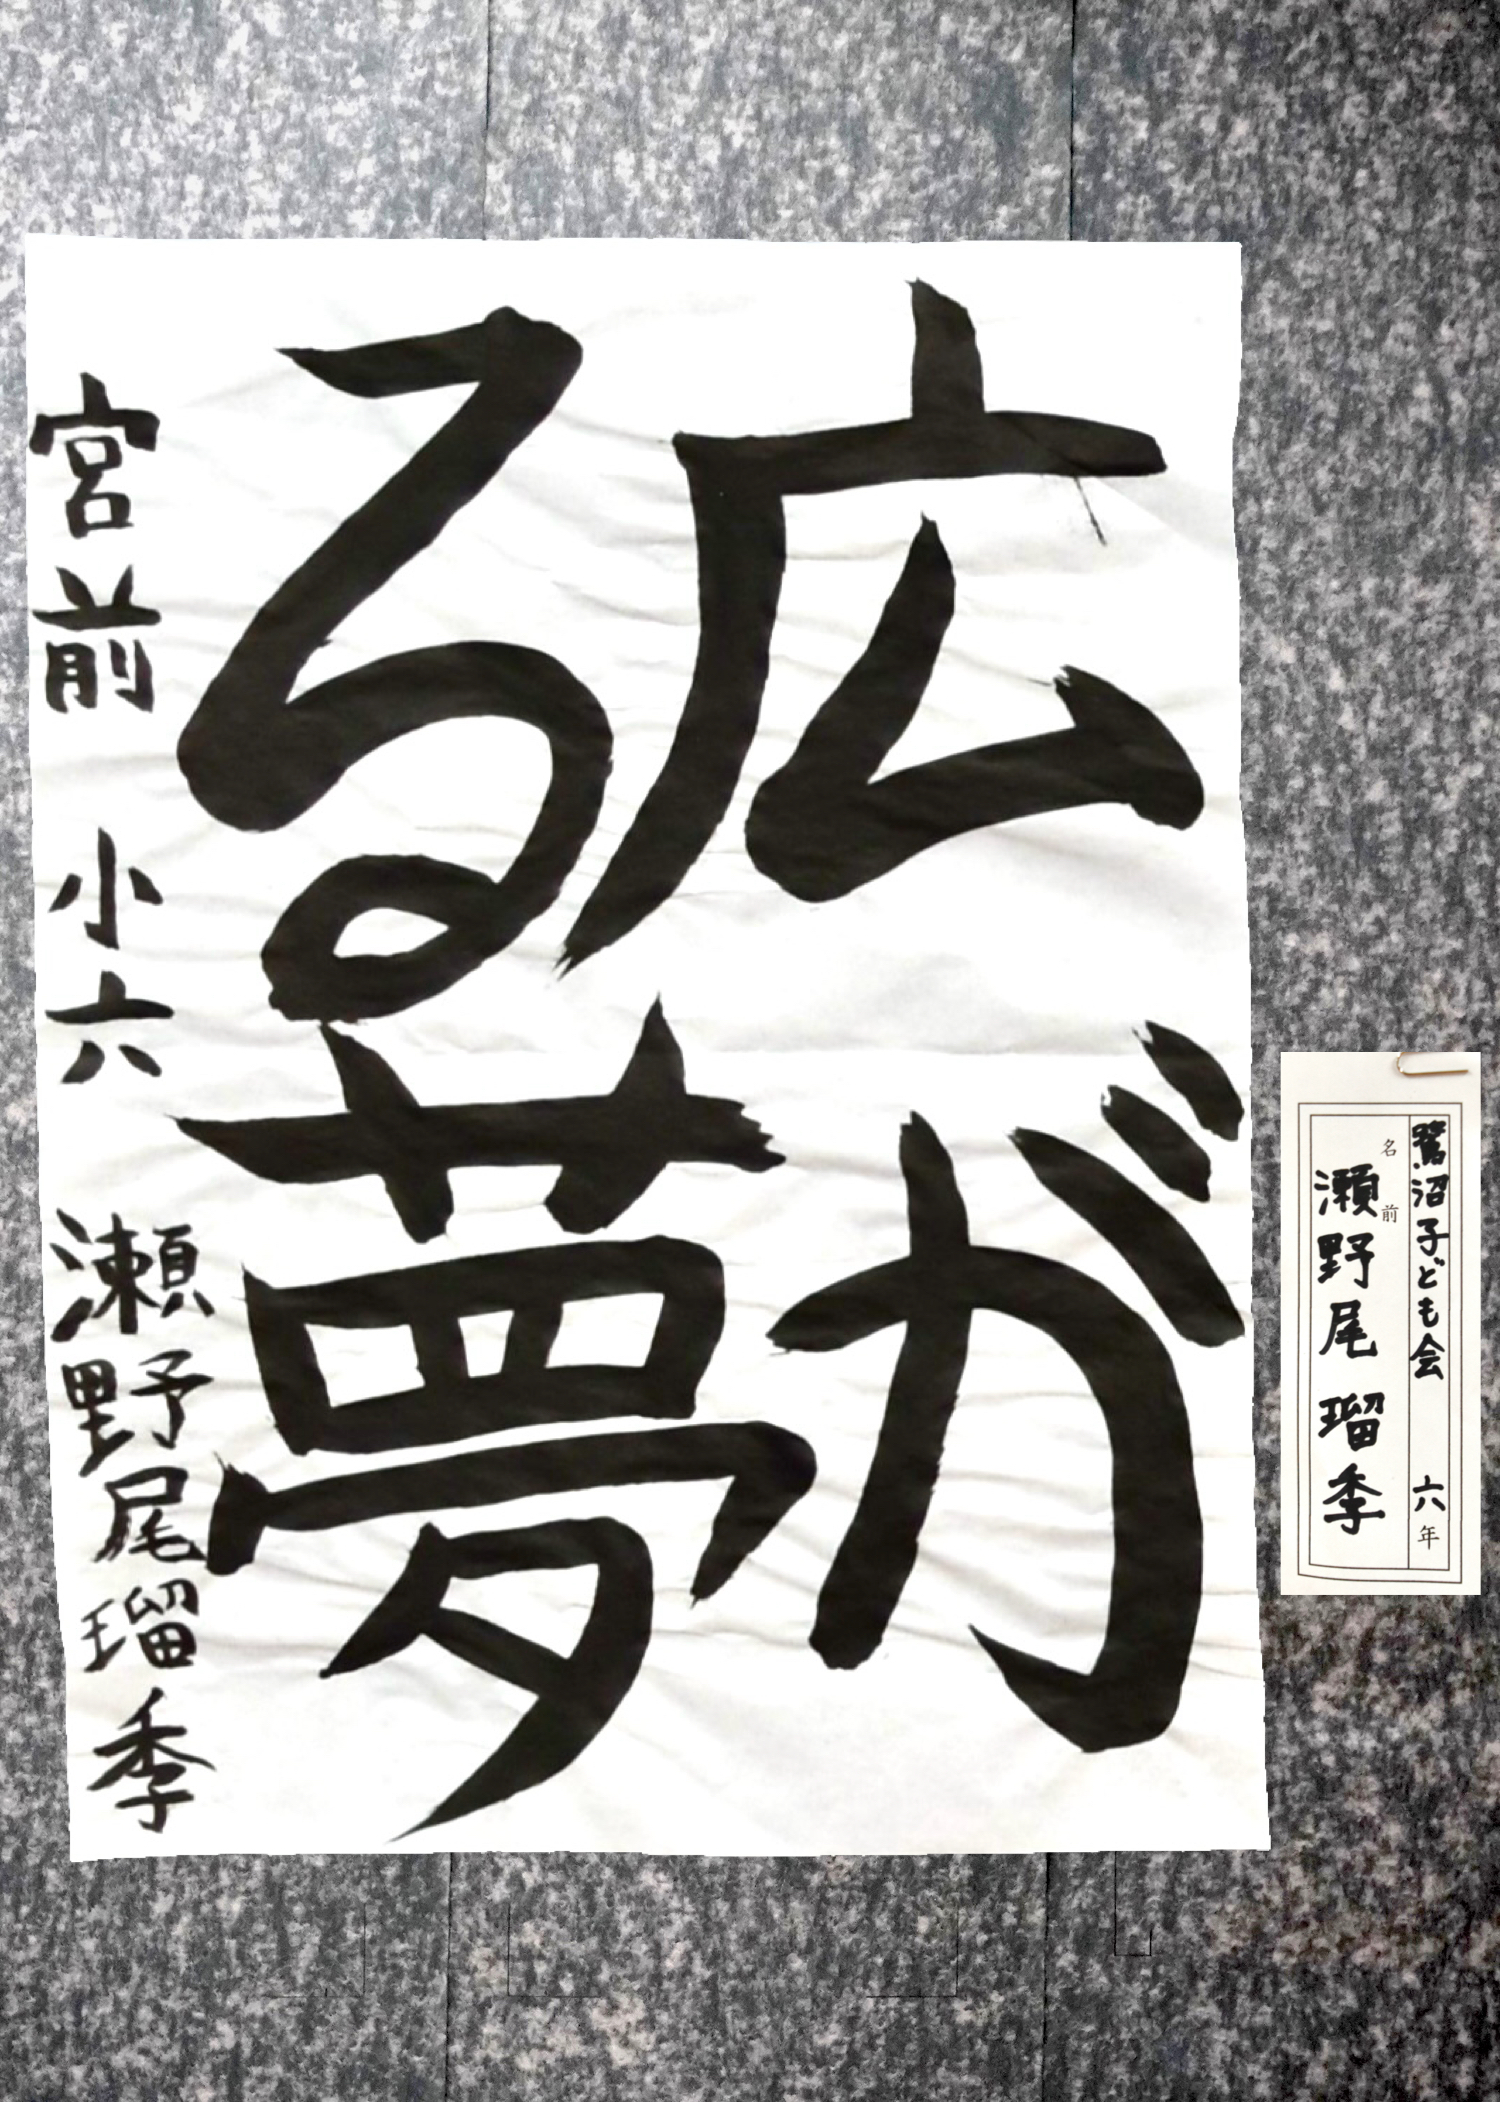 広が
る夢
宮前 小六 瀬野尾瑠季
鷺沼子ども会 六年
名前 瀬野尾瑠季